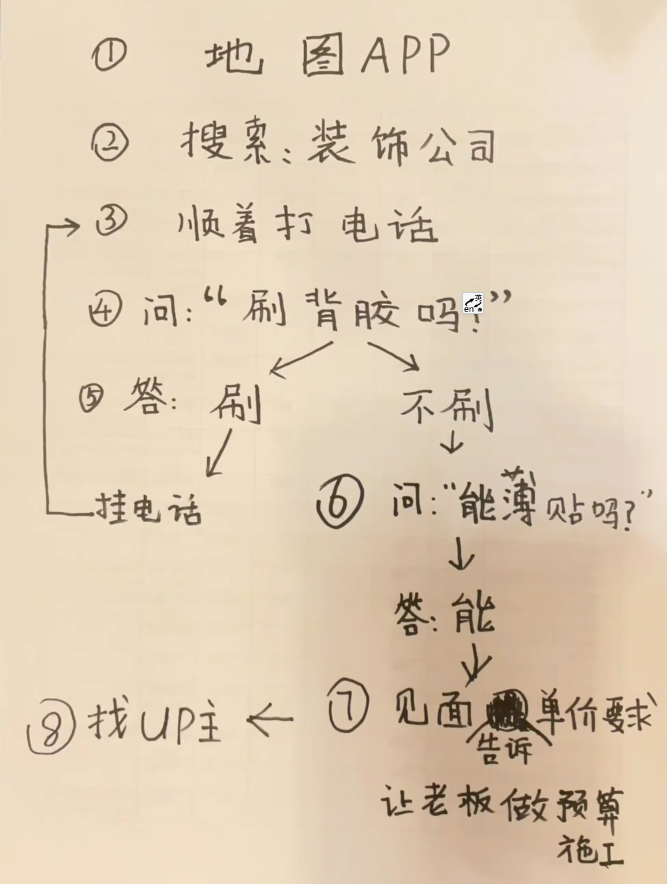 ① 地图APP
② 搜索：装饰公司
③ 顺着打电话
④ 问：“刷背胶吗？”
⑤ 答：刷 不刷
挂电话 ⑥ 问：“能薄贴吗？”
答：能
⑧ 找UP主 ⑦ 见面告诉单价要求
让老板做预算
施工